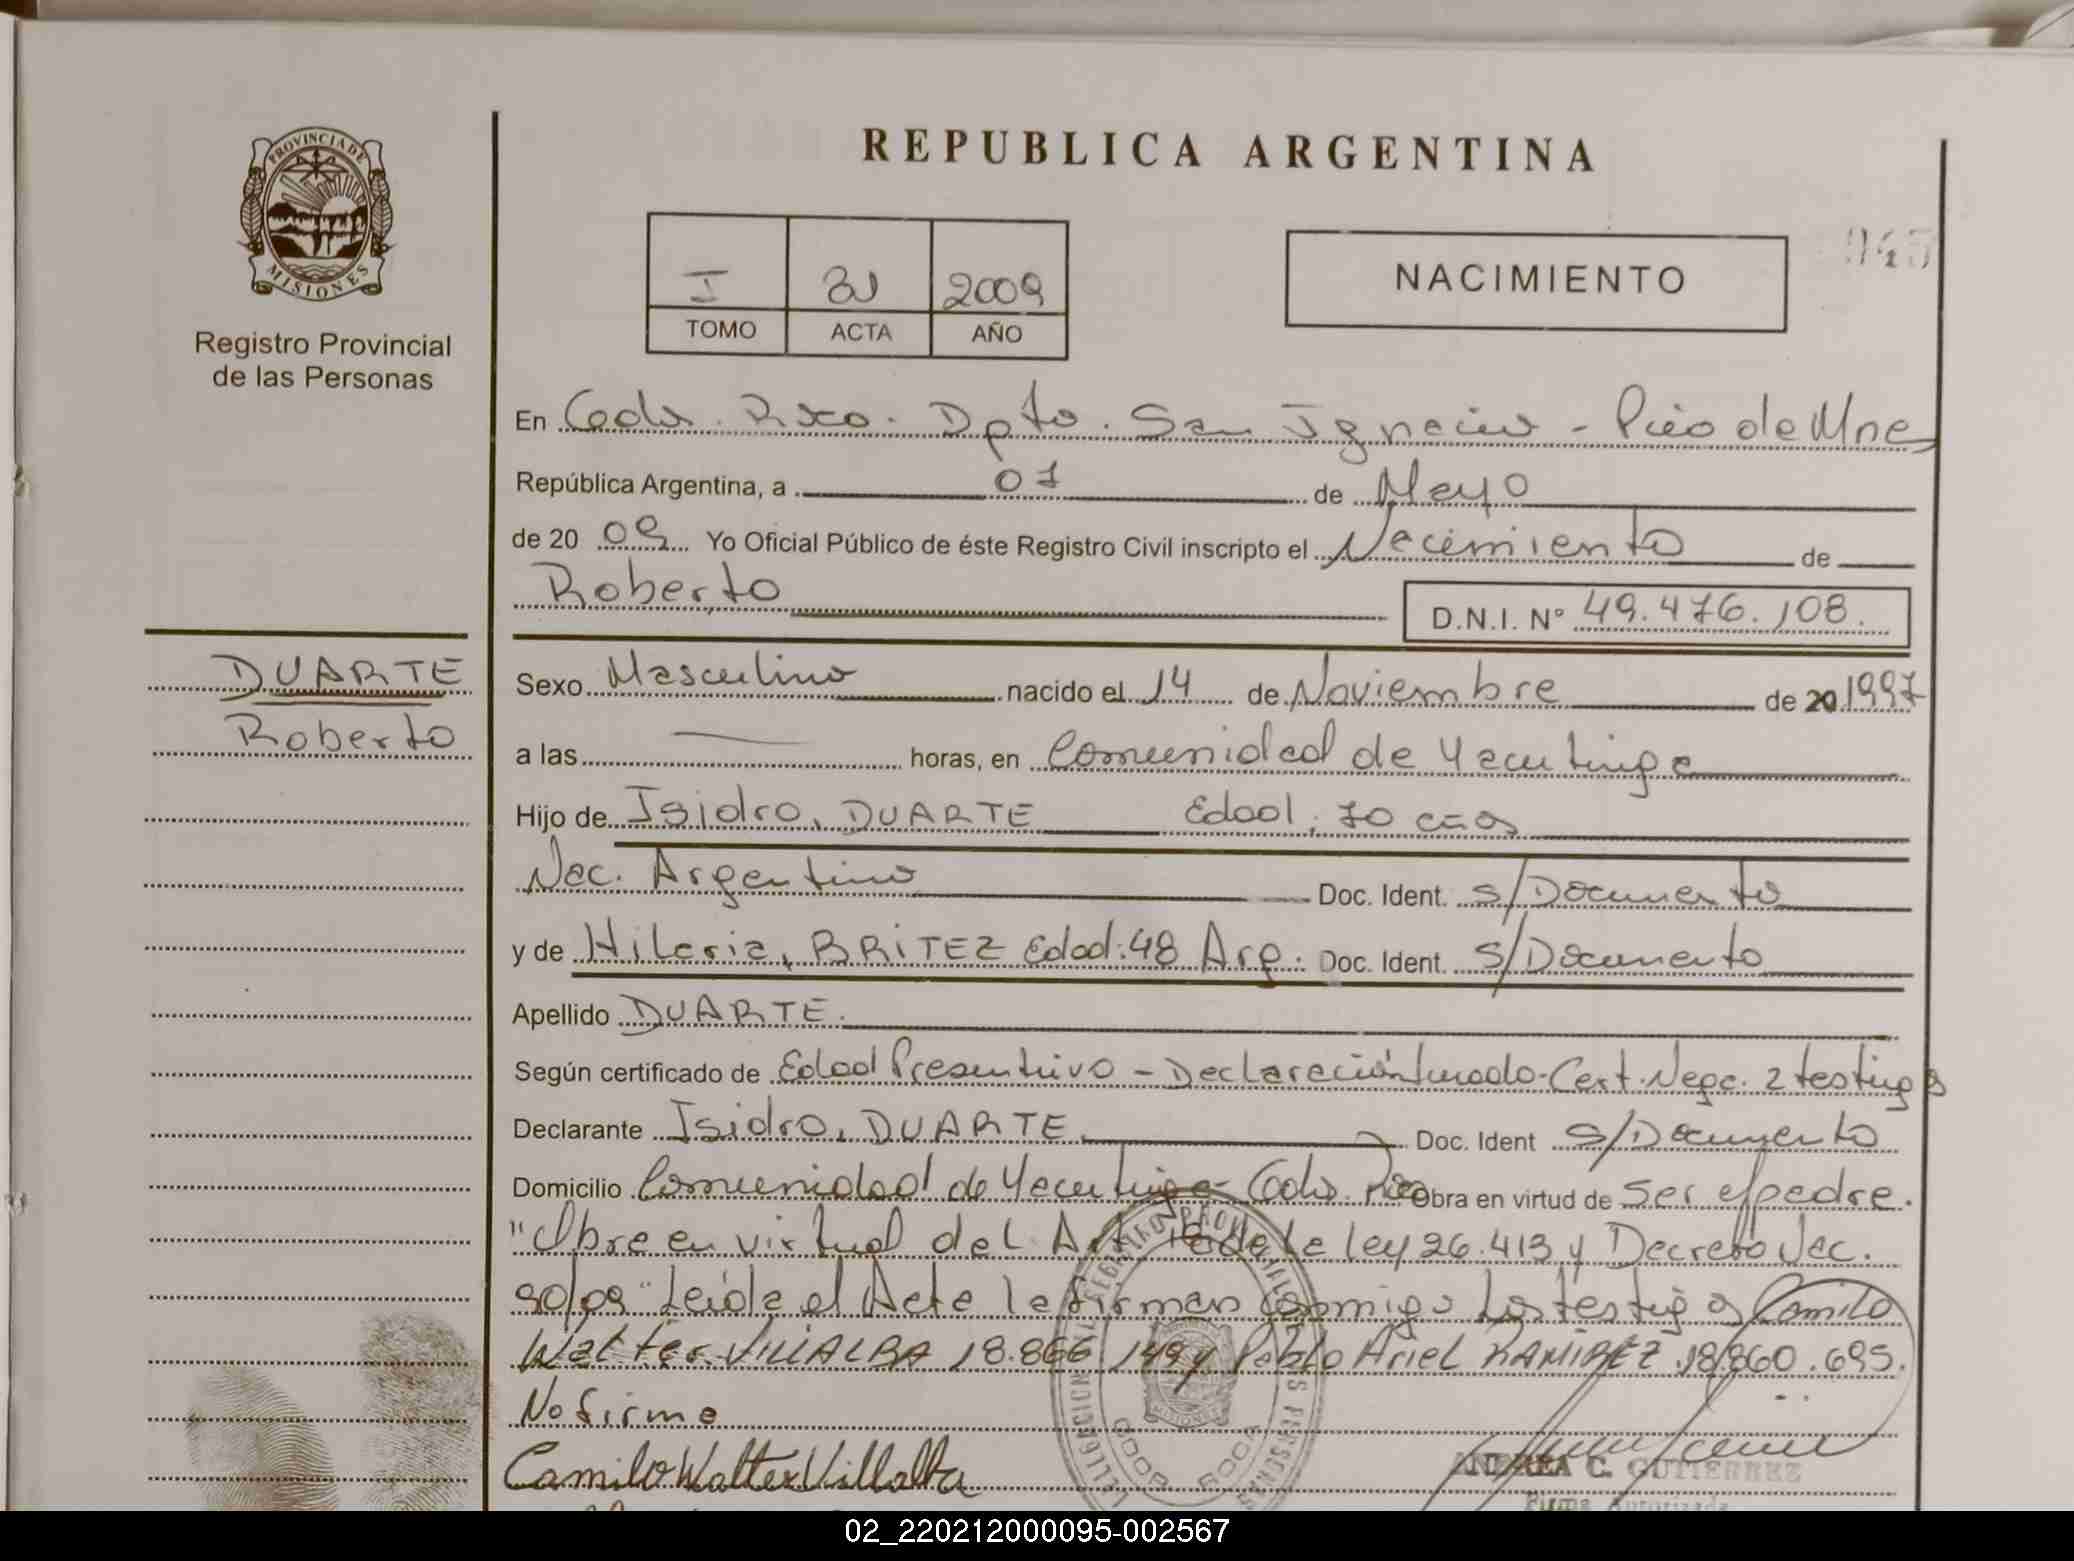 PROVINCIA DE
MISIONES
Registro Provincial
de las Personas
REPUBLICA ARGENTINA
I 31 2009
TOMO ACTA AÑO
NACIMIENTO
En Gdor. Roca. Dpto. San Ignacio - Pcia de Mnes
República Argentina, a 07 de Mayo
de 20 09 Yo Oficial Público de éste Registro Civil inscripto el Nacimiento de
Roberto D.N.I. Nº 49.476.108.
DUARTE
Roberto
Sexo Masculino nacido el 14 de Noviembre de 20 1997
a las horas, en Comunidad de Yacutinga
Hijo de Isidro, DUARTE Edad: 70 años
Nac. Argentino Doc. Ident. s/Documento
y de Hilaria, BRITEZ Edad: 48 Arg. Doc. Ident. S/Documento
Apellido DUARTE.
Según certificado de Edad Presuntivo - Declaración Jurada - Cert. Nega. 2 testigos
Declarante Isidro, DUARTE Doc. Ident s/Documento
Domicilio Comunidad de Yacutinga - Gdor. Roca Obra en virtud de ser el padre.
"Obra en virtud del Art de la ley 26.413 y Decreto Nac.
90/09" Leída el Acta la firman conmigo los testigos Camilo
Walter VILLALBA 18.866.149 y Pablo Ariel RAMIREZ 18.860.695.
No firma
Camilo Walter Villalba
REGISTRO PROVINCIAL DE LAS PERSONAS
ANDREA C. GUTIERREZ
Firma Autorizada
02_220212000095-002567